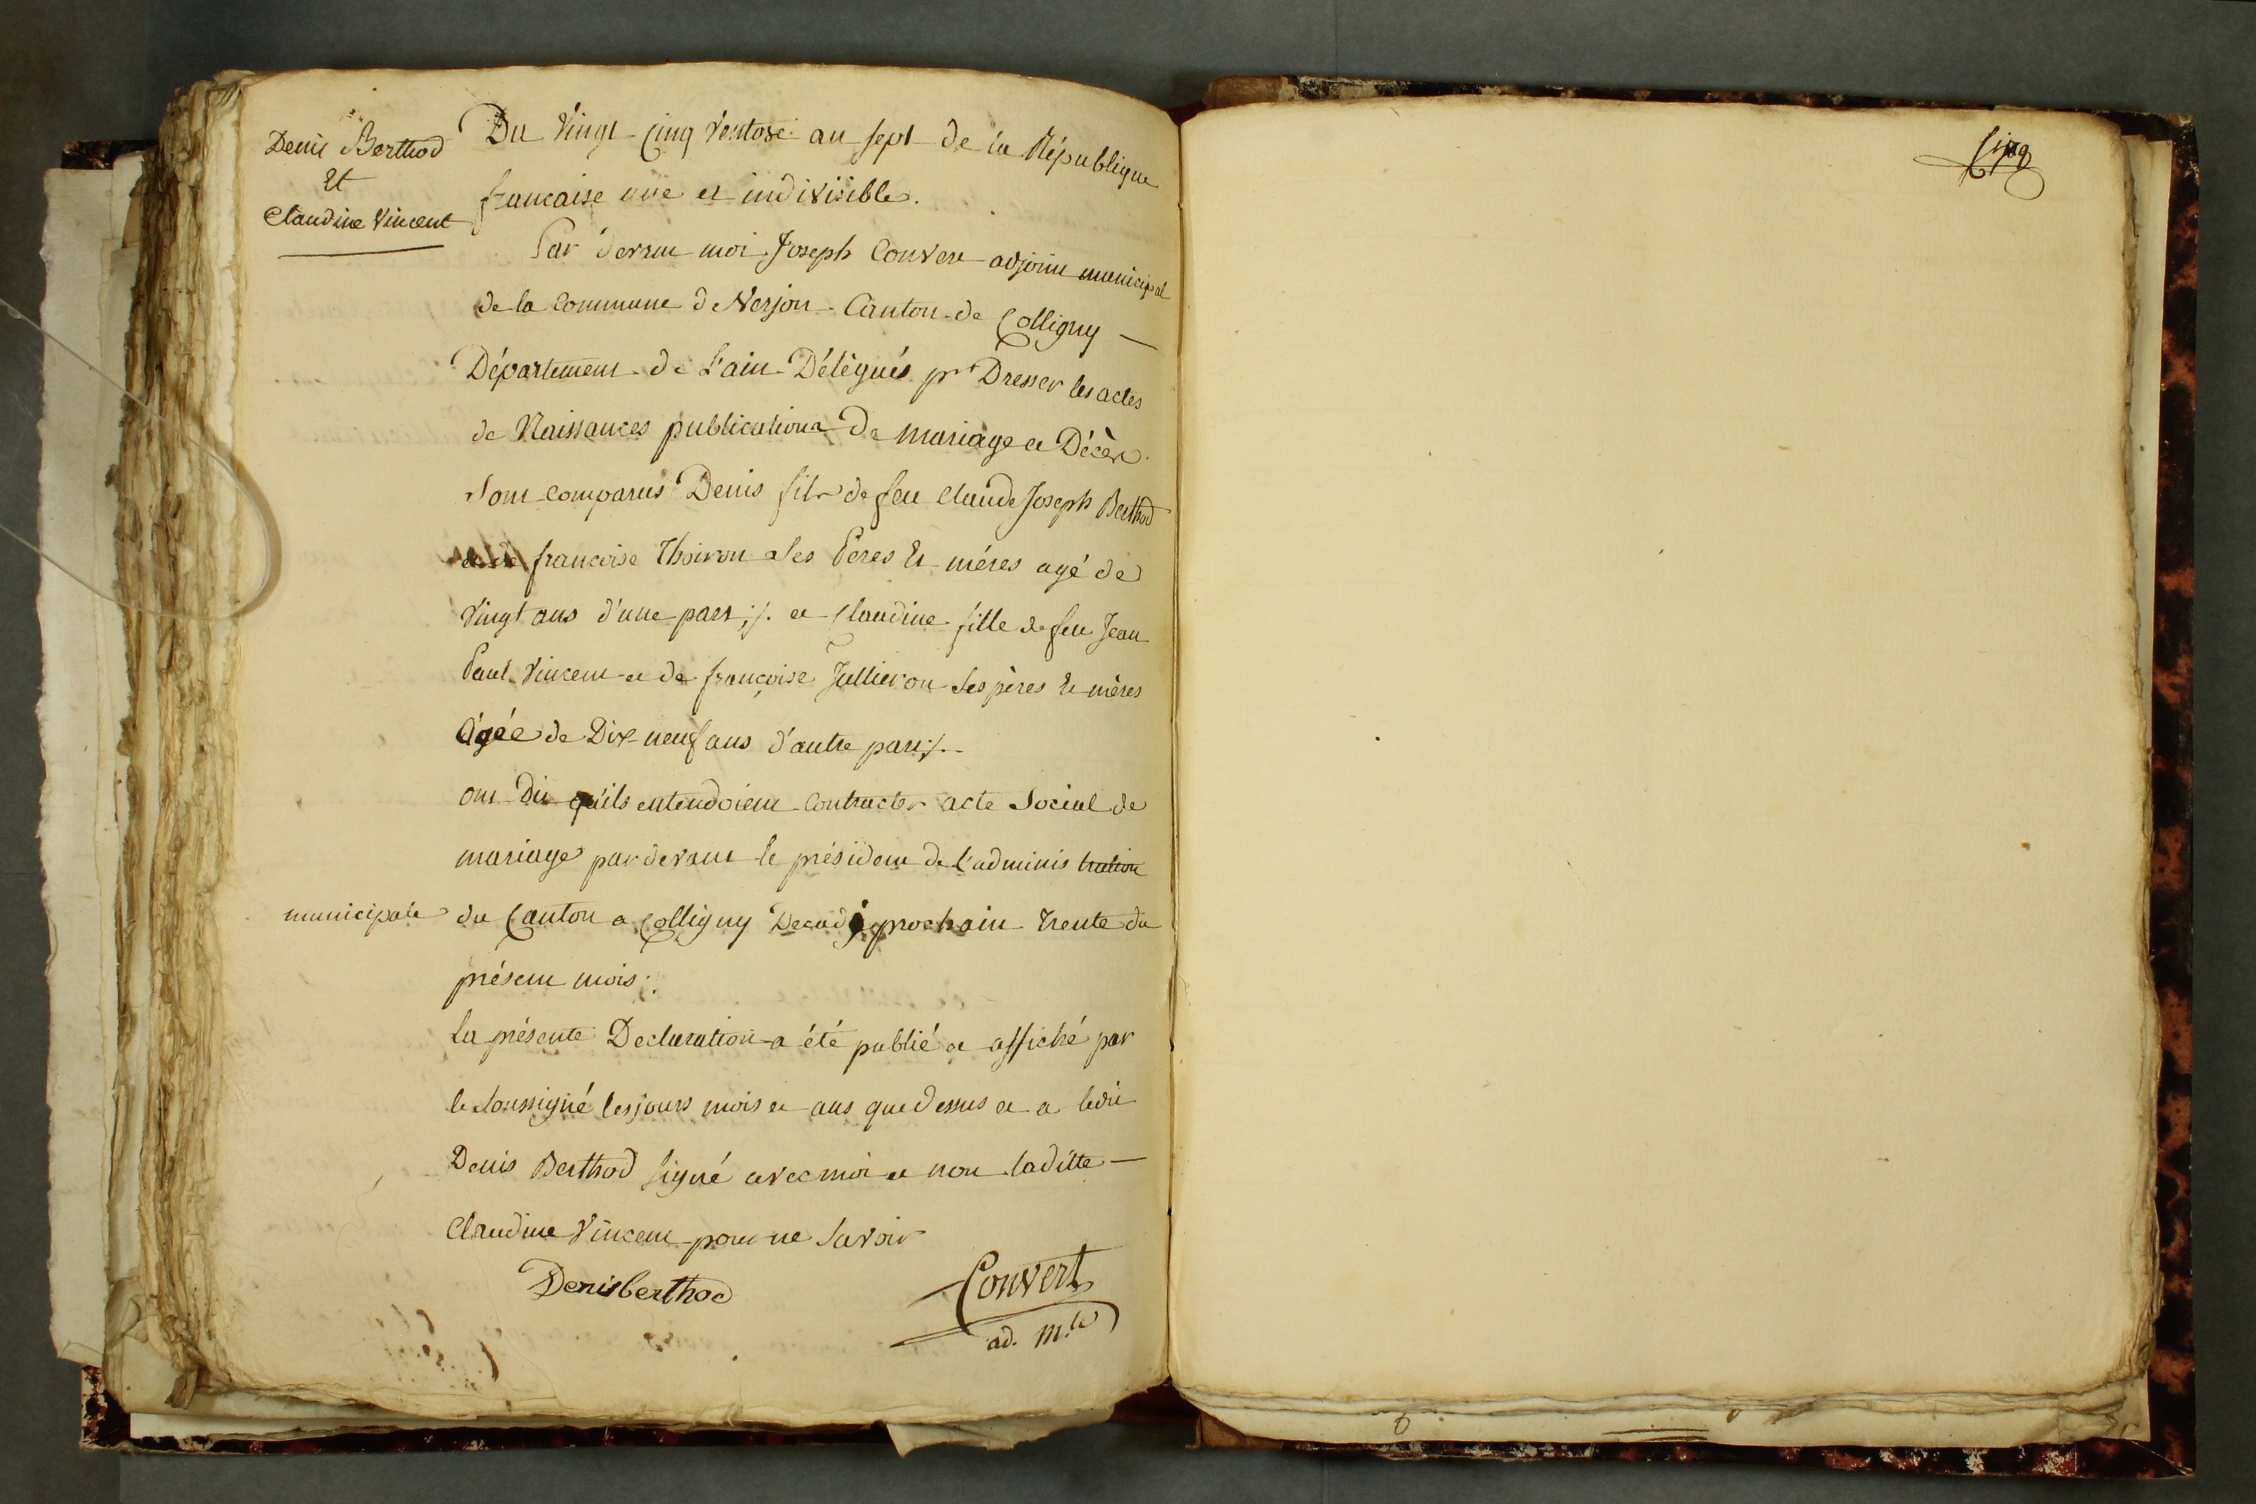 Denis Berthod
Et
Claudine Vincent
Du Vingt-Cinq Ventose an sept de la République
francaise une et indivisible.
Par devant moi Joseph Convert adjoint municipal
de la Commune de Verjon Canton de Colligny —
Département de L'ain Délégués pr Dresser les actes
de Naissances publications De mariage et Décès.
Sont comparus Denis fils de feu Claude Joseph Berthod
et de francoise Thoiron Ses Peres Et méres agé de
Vingt ans d'une part ;/. et Claudine fille de feu Jean
Paul Vincent et de françoise Jullieron Ses pères Et mères
Agée de Dix-neuf ans d'autre part ;/.
ont Dit qu'ils entendoient Contracter acte Social de
mariage pardevant le président de l'adminis tration
municipale du Canton a Colligny Decadi prochain trente du
présent mois.
La présente Declaration a été publié et affiché par
le Soussigné les jours mois et ans que dessus et a ledit
Denis Berthod Signé avec moi et non laditte —
Claudine Vincent pour ne Savoir
Denis berthod
Convert
ad. m.le
Cinq